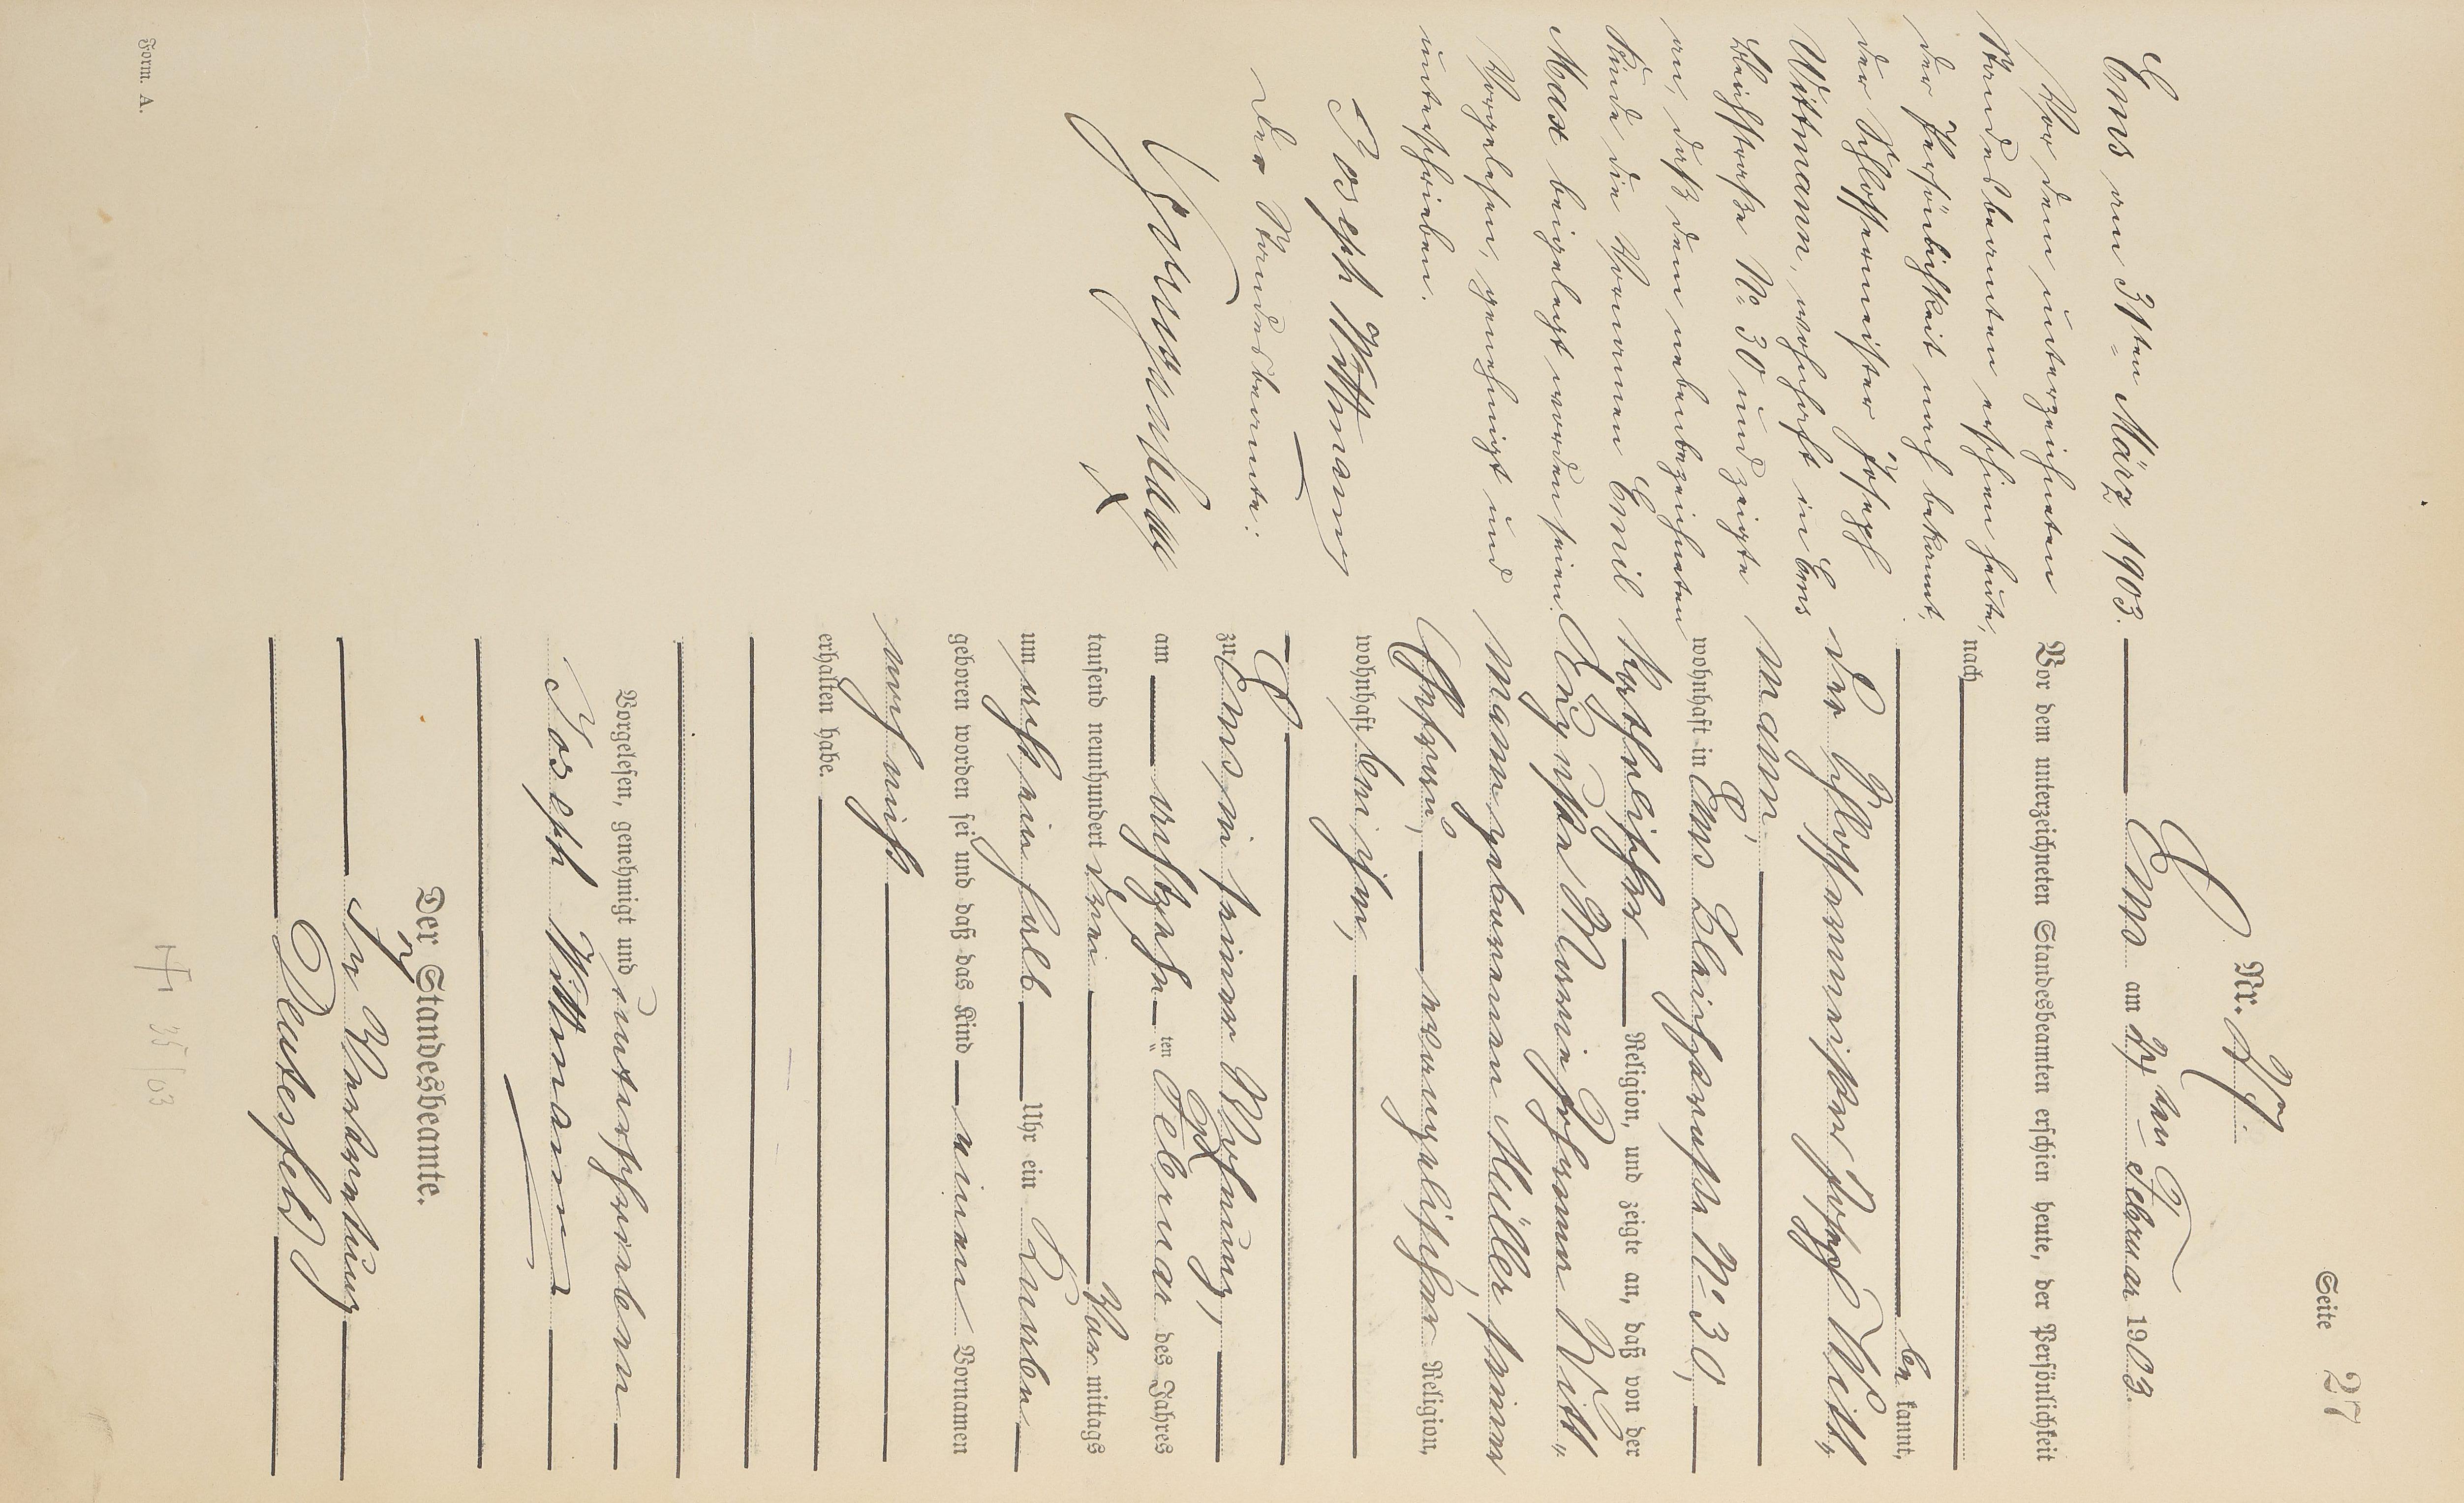 Seite 27
Nr. 27.
Ems am 21ten Februar 1903.
Vor dem unterzeichneten Standesbeamten erschien heute, der Persönlichkeit
nach
be kannt,
der Schlossermeister Joseph Witt„
mann,
wohnhaft in Ems Bleichstraße No 30,
katholischer Religion, und zeigte an, daß von der
Marie Johanna Witt„
mann geborenen Müller, seiner
Ehefrau, evangelischer Religion,
wohnhaft bei ihm,
zu Ems in seiner Wohnung,
am achtzehn ten Februar des Jahres
tausend neunhundert drei Vor mittags
um acht ein halb Uhr ein Knabe
geboren worden sei und daß das Kind einen Vornamen
noch nicht
erhalten habe.
Vorgelesen, genehmigt und unterschrieben
Joseph Wittmann
Der Standesbeamte.
In Vertretung
Ems am 31ten März 1903.
Vor dem unterzeichneten
Standesbeamten erschien heute,
der Persönlichkeit nach bekannt,
der Schlossermeister Joseph
Wittmann, wohnhaft in Ems
Bleichstraße No 30 und zeigte
an, daß dem nebenbezeichneten
Kinde die Vornamen Emil
Max beigelegt worden seien.
Vorgelesen, genehmigt und
unterschrieben.
Joseph Wittmann
Der Standesbeamte:
Form. A.